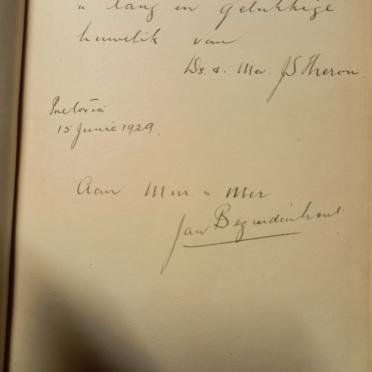 'n lang en gelukkige
huwelik van
Ds. & Mev. J S Theron.
Pretoria
15 Junie 1929.
Aan Mnr & Mev
Jan Bezuidenhout